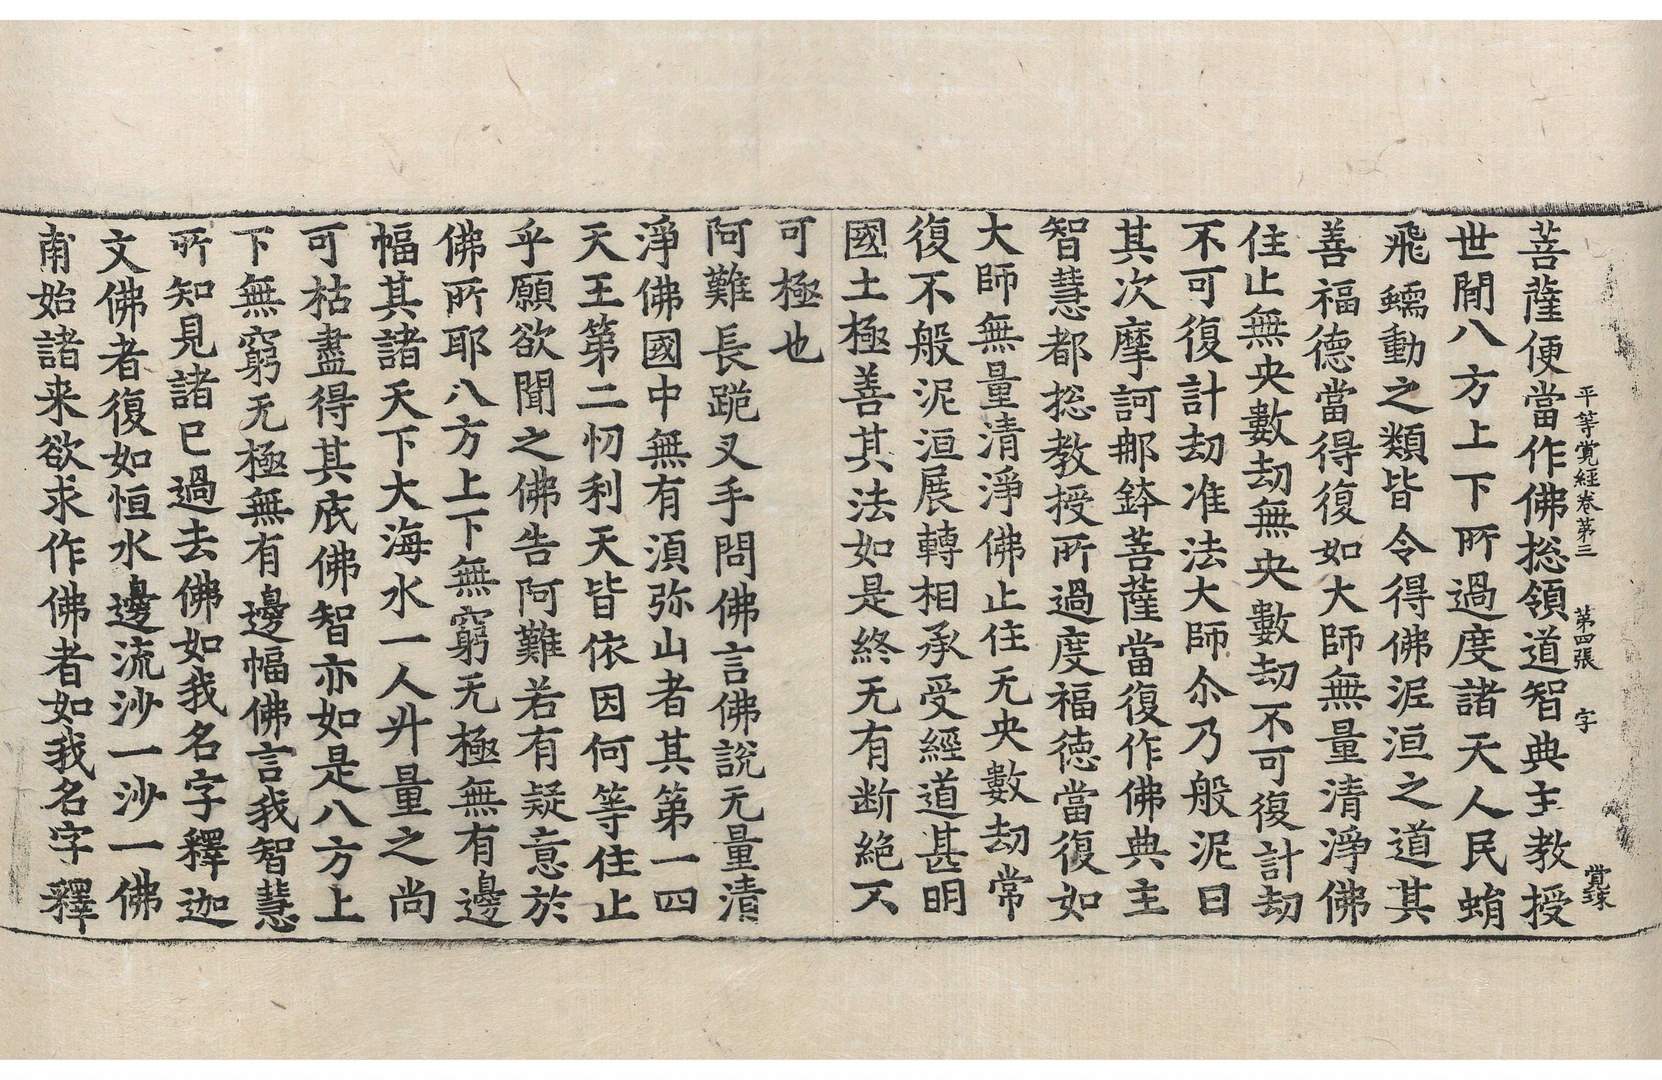 平等覺經卷第三 第四張 字
菩薩便當作佛揔領道智典主教授
世閒八方上下所過度諸天人民蜎
飛蠕動之類皆令得佛泥洹之道其
善福德當得復如大師無量清淨佛
住止無央數劫無央數劫不可復計劫
不可復計劫准法大師尒乃般泥曰
其次摩訶那鉢菩薩當復作佛典主
智慧都揔教授所過度福德當復如
大師無量清淨佛止住无央數劫常
復不般泥洹展轉相承受經道甚明
國土極善其法如是終无有断絶不
可極也
阿難長跪叉手問佛言佛說无量清
淨佛國中無有須弥山者其第一四
天王第二忉利天皆依因何等住止
乎願欲聞之佛告阿難若有疑意於
佛所耶八方上下無窮无極無有邊
幅其諸天下大海水一人升量之尚
可枯盡得其底佛智亦如是八方上
下無窮无極無有邊幅佛言我智慧
所知見諸已過去佛如我名字釋迦
文佛者復如恒水邊流沙一沙一佛
甫始諸来欲求作佛者如我名字釋